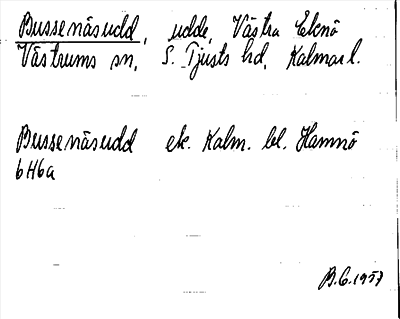 Bussenäsudd, udde, Västra Eknö
Västrums sn, S. Tjusts hd, Kalmar l.
Bussenäsudd ek. Kalm. bl. Hamnö
6H6a
B.G. 1957